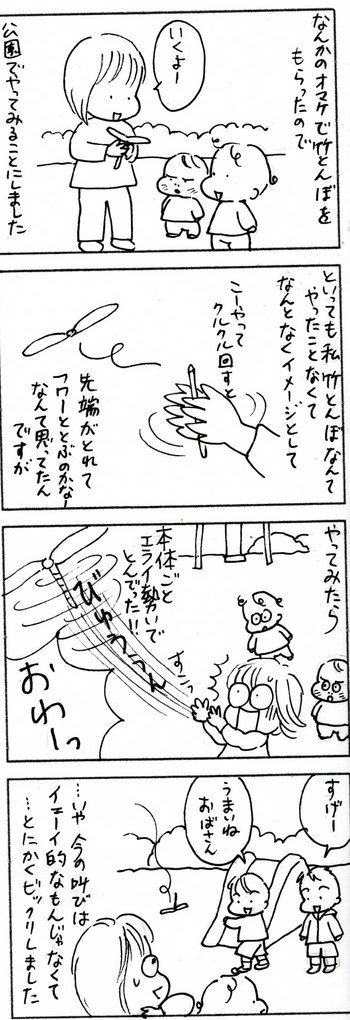 なんかのオマケで竹とんぼを
もらったので
いくよー
公園でやってみることにしました
といっても私 竹とんぼなんて
やったことなくて
なんとなくイメージとして
こーやって
クルクル回すと
先端がとれて
フワーととぶのかなー
なんて思ってたん
ですが
やってみたら
本体ごと
エライ勢いで
とんでった!!
びゅうぅん
ずンっ
おわーっ
すげー
うまいね
おばさん
…いや 今の叫びは
イェーイ的なもんじゃなくて
…とにかくビックリしました